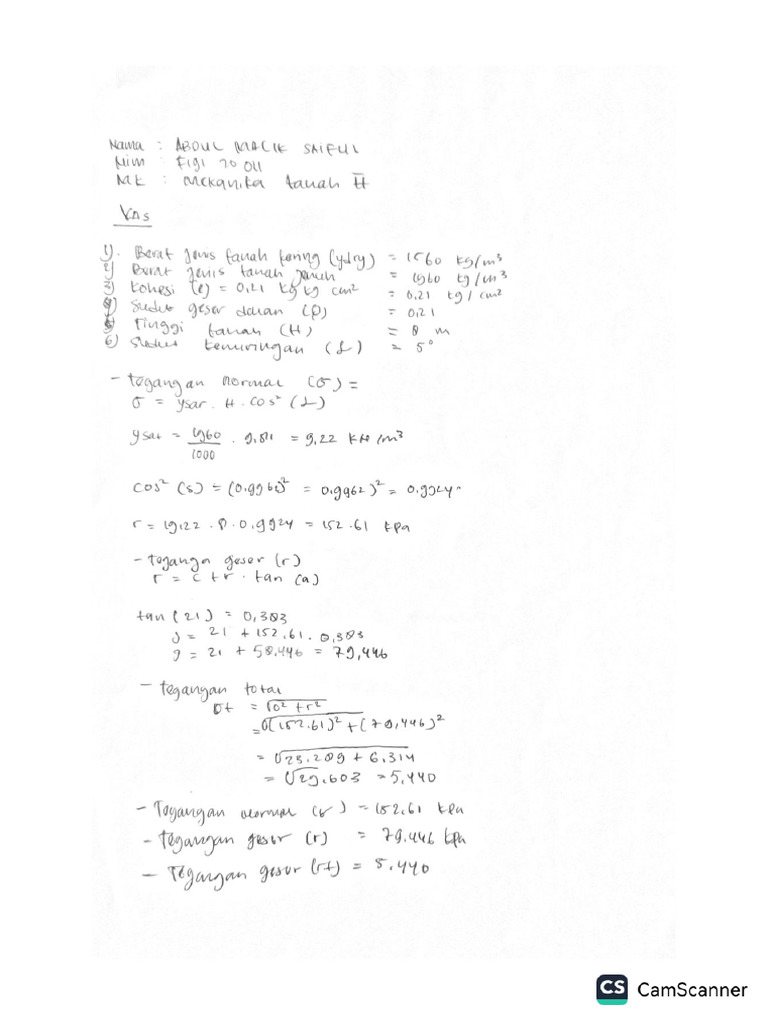 Nama : ABDUL MALIK SAIFUL
Nim : F191 20 011
MK : Mekanika tanah II
KDS
1). Berat jenis tanah kering (γdry) = 1560 kg/m³
2) Berat jenis tanah jenuh = 1960 kg/cm³
3) Kohesi (c) = 0,21 kg kg cm² = 0.21 kg/cm²
4) Sudut geser dalam (φ) = 0,21
5) Tinggi tanah (H) = 8 m
6) Sudut kemiringan (α) = 5°
- Tegangan normal (σ) =
σ = γsat . H . cos² (α)
γsat = 1960/1000 . 9.81 = 9,22 KN/m³
cos² (5) = (0.9962)² = 0.9962)² = 0.9924
r = 19,22 . 8 . 0.9924 = 152.61 kpa
- Teganga geser (r)
r = c + r . tan (a)
tan (21) = 0,383
J = 21 + 152.61 . 0,383
g = 21 + 58.446 = 79,446
- Tegangan total
σt = √σ² + r²
= √(152.61)² + (79,446)²
= √23.289 + 6.314
= √29.603 = 5,440
- Tegangan normal (σ) = 152,61 kpa
- Tegangan geser (r) = 79.446 kpa
- Tegangan geser (rt) = 5.440
CS CamScanner